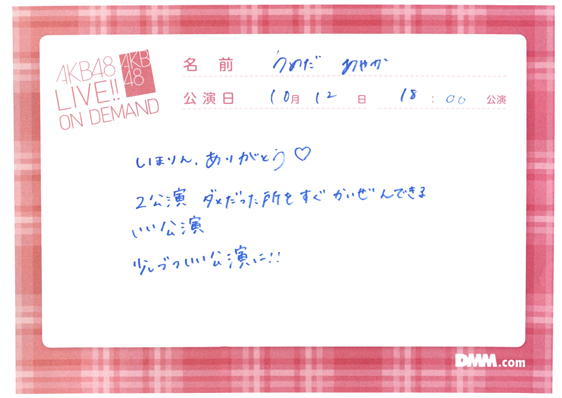 AKB48
LIVE!!
ON DEMAND
AKB
48
名前 うめだ あやか
公演日 10月12日 18:00 公演
しほりん、ありがとう♡
2公演 ダメだった所をすぐかいぜんできる
いい公演
少しづついい公演に!!
DMM.com